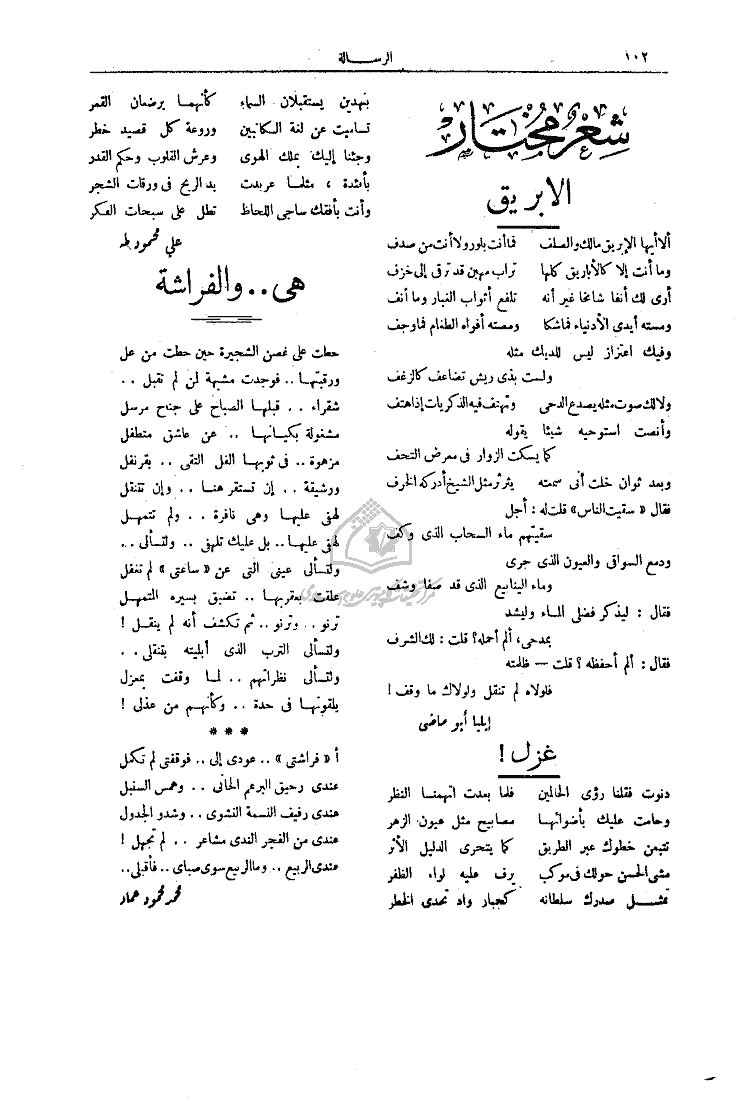 ١٠٢
الرسالة
شعر مختار
الابريق
ألا أيها الإبريق مالك والصلف فما أنت بلور ولا أنت من صدف
وما أنت إلا كالأباريق كلها تراب مهين قد ترقى إلى خزف
أرى لك أنفا شامخا غير أنه تلفع أثواب الغبار وما أنف
ومسته أيدى الأدنياء فما شكا ومصته أفواه الطغام فما وجف
وفيك اعتزاز ليس للديك مثله
ولست بذى ريش تضاعف كالزغف
ولا لك صوت مثله يصدع الدجى وتهتف فيه الذكريات إذا هتف
وأنصت استوحيه شيئا يقوله
كما يسكت الزوار فى معرض التحف
وبعد ثوان خلت أنى سمعته يثرثر مثل الشيخ أدركه الخرف
فقال « سقيت الناس » قلت له : أجل
سقيتهم ماء السحاب الذى وكف
ودمع السواقى والعيون الذى جرى
وماء الينابيع الذى قد صفا وشف
فقال : ليذكر فضلى الماء وليشد
بمدحى ، ألم أحمله ؟ قلت : لك الشرف
فقال : ألم أحفظه ؟ قلت — ظلمته
فلولاه لم تنقل ولولاك ما وقف !
إيليا أبو ماضى
غزل !
دنوت فقلنا رؤى الحالمين فلما بعدت اتهمنا النظر
وحامت عليك بأضوائها مصابيح مثل عيون الزهر
تتبعن خطوك عبر الطريق كما يتحرى الدليل الأثر
مشى الحسن حولك فى موكب يرف عليه لواء الظفر
تمثل صدرك سلطانه كجبار واد تحدى الخطر
بنهدين يستقبلان السماء كأنهما يرضعان القمر
تساميت عن لغة الكاتبين وروعة كل قصيد خطر
وجئنا إليك بملك الهوى وعرش القلوب وحكم القدر
بأفئدة ، مثلما عربدت يد الريح فى ورقات الشجر
وأنت بأفقك ساجى اللحاظ تطل على سبحات الفكر
على محمود طه
هى .. والفراشة
حطت على غصن الشجيرة حين حطت من عل
ورقبتها .. فوجدت مشبهة لمن لم تقبل ..
شقراء .. قبلها الصباح على جناح مرسل
مشغولة بكيانها .. عن عاشق متطفل
مزهوة .. فى ثوبها الفل النقى .. بقرنفل
ورشيقة .. إن تستقر هنا .. وإن تتنقل
لهفى عليها وهى نافرة .. ولم تتمهل
لهفى عليها .. بل عليك تلهفى .. ولتسألى ..
ولتسألى عينى التى عن « ساعتى » لم تغفل
علقت بعقربها .. تضيق بسيره المتمهل
ترنو .. وترنو .. ثم تكشف أنه لم ينقل !
ولتسألى الترب الذى أبليته بتنقلى ..
ولتسألى نظراتهم .. لما وقفت بمعزل
يلقونها فى حدة .. وكأنهم من عذلى !
* * *
أ « فراشتى » .. عودى إلى .. فوقفتى لم تكمل
عندى رحيق البرعم الحانى .. وهمس السنبل
عندى رفيف النسمة النشوى .. وشدو الجدول
عندى من الفجر الندى مشاعر .. لم تجهل !
عندى الربيع .. وما الربيع سوى صباى .. فأقبلى ..
محمد محمود عماد